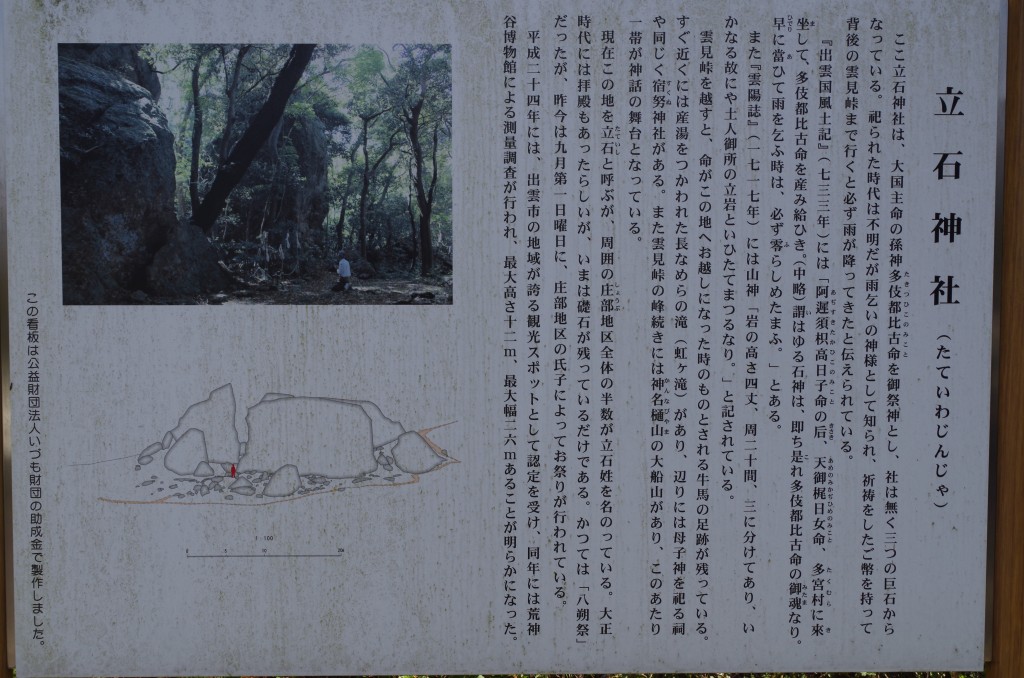 立石神社（たていわじんじゃ）
ここ立石神社は、大国主命の孫神多伎都比古命を御祭神とし、社は無く三つの巨石から
なっている。祀られた時代は不明だが雨乞いの神様として知られ、祈祷をしたご幣を持って
背後の雲見峠まで行くと必ず雨が降ってきたと伝えられている。
『出雲国風土記』（七三三年）には「阿遅須枳高日子命の后、天御梶日女命、多宮村に来
坐して、多伎都比古命を産み給ひき。（中略）謂はゆる石神は、即ち是れ多伎都比古命の御魂なり。
旱に當ひて雨を乞ふ時は、必ず零らしめたまふ。」とある。
また『雲陽誌』（一七一七年）には山神「岩の高さ四丈、周二十間、三に分けてあり、い
かなる故にや土人御所の立岩といひたてまつるなり。」と記されている。
雲見峠を越すと、命がこの地へお越しになった時のものとされる牛馬の足跡が残っている。
すぐ近くには産湯をつかわれた長なめらの滝（虹ヶ滝）があり、辺りには母子神を祀る祠
や同じく宿努神社がある。また雲見峠の峰続きには神名樋山の大船山があり、このあたり
一帯が神話の舞台となっている。
現在この地を立石と呼ぶが、周囲の庄部地区全体の半数が立石姓を名のっている。大正
時代には拝殿もあったらしいが、いまは礎石が残っているだけである。かつては「八朔祭」
だったが、昨今は九月第一日曜日に、庄部地区の氏子によってお祭りが行われている。
平成二十四年には、出雲市の地域が誇る観光スポットとして認定を受け、同年には荒神
谷博物館による測量調査が行われ、最大高さ十二ｍ、最大幅二六ｍあることが明らかになった。
1：100
0 5 10 20m
この看板は公益財団法人いづも財団の助成金で製作しました。